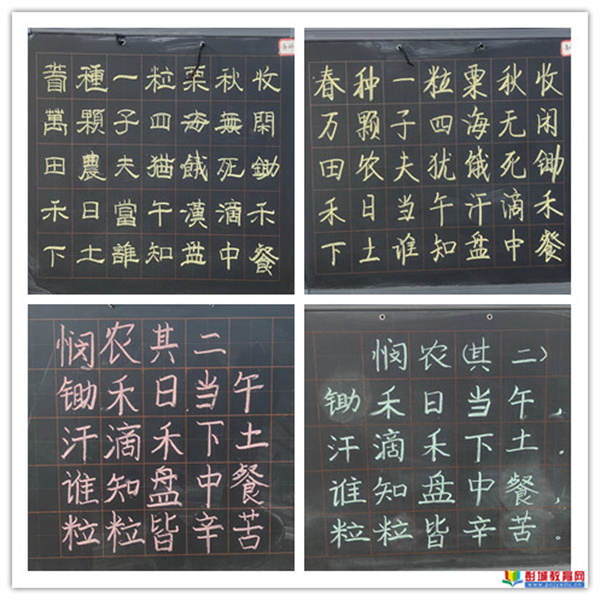 春種一粒栗秋收
萬顆子四海無閑
田農夫猶餓死鋤
禾日當午漢滴禾
下土誰知盘中餐
春种一粒粟秋收
万颗子四海无闲
田农夫犹饿死锄
禾日当午汗滴禾
下土谁知盘中餐
悯农其二
锄禾日当午
汗滴禾下土
谁知盘中餐
粒粒皆辛苦
悯农(其二)
锄禾日当午,
汗滴禾下土.
谁知盘中餐,
粒粒皆辛苦.
彭城教育网